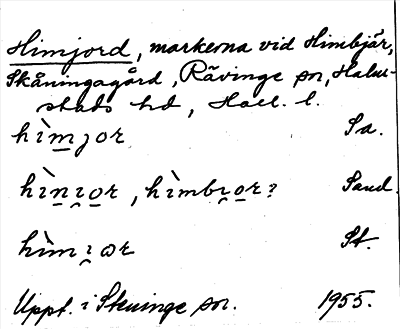 Himjord, markerna vid Himbjär,
Skåningagård, Rävinge sn, Halm-
stads hd, Hall. l.
hìm̲jor Sa.
hìn̲i̯o̲r, hìmbi̯o̲r? Sand.
hìmi̯ɷr St.
Uppt. i Steninge sn. 1955.